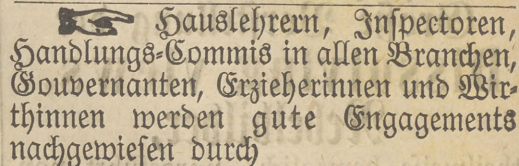 ☞ Hauslehrern, Inſpectoren,
Handlungs-Commis in allen Branchen,
Gouvernanten, Erzieherinnen und Wir-
thinnen werden gute Engagements
nachgewieſen durch